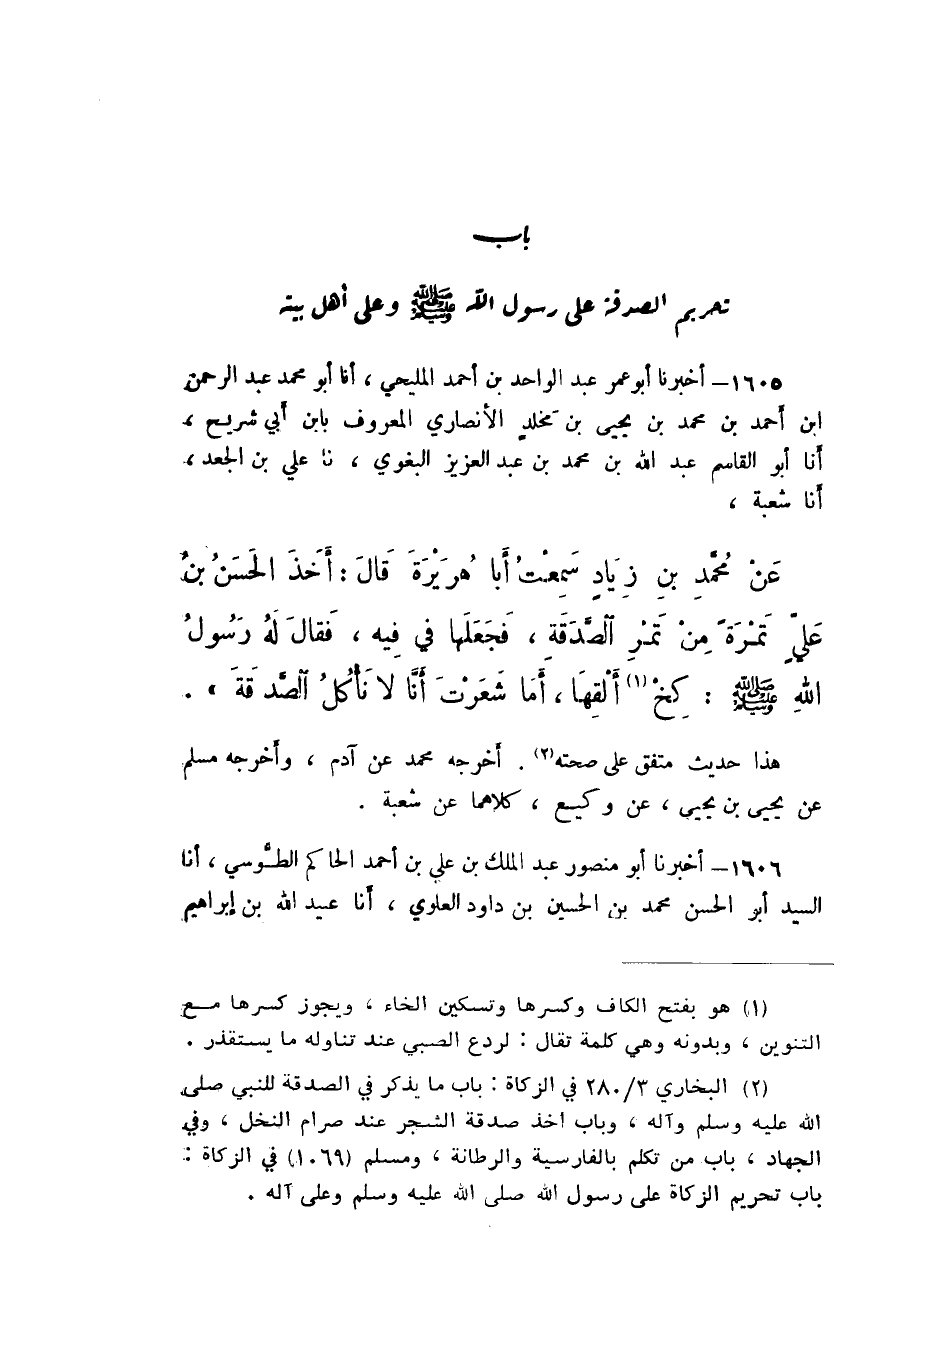 باب
تحريم الصدقة على رسول الله ﷺ وعلى أهل بيته
١٦٠٥ – أخبرنا أبو عمر عبد الواحد بن أحمد المليحي ، أنا أبو محمد عبد الرحمن
ابن أحمد بن محمد بن يحيى بن مَخلدٍ الأنصاري المعروف بابن أبي شريح ،
أنا أبو القاسم عبد الله بن محمد بن عبد العزيز البغوي ، نا علي بن الجعد ،
أنا شعبة ،
عَنْ مُحَمَّدِ بنِ زِيَادٍ سَمِعْتُ أَبا هُرَيْرَةَ قَالَ : أَخَذَ الحَسَنُ بنُ
عَليٍّ تَمْرَةً مِنْ تَمْرِ الصَّدَقَةِ ، فَجَعَلَها في فِيه ، فَقالَ لَهُ رَسُولُ
اللهِ ﷺ : كِخْ (١) أَلْقِهَا ، أَمَا شَعَرْتَ أَنَّا لا نَأْكُلُ الصَّدَقَةَ » .
هذا حديث متفق على صحته (٢) . أخرجه محمد عن آدم ، وأخرجه مسلم
عن يحيى بن يحيى ، عن وكيع ، كلاهما عن شعبة .
١٦٠٦ – أخبرنا أبو منصور عبد الملك بن علي بن أحمد الحاكم الطُّوسي ، أنا
السيد أبو الحسن محمد بن الحسين بن داود العلوي ، أنا عبيد الله بن إبراهيم
(١) هو بفتح الكاف وكسرها وتسكين الخاء ، ويجوز كسرها مع
التنوين ، وبدونه وهي كلمة تقال : لردع الصبي عند تناوله ما يستقذر .
(٢) البخاري ٣/٢٨٠ في الزكاة : باب ما يذكر في الصدقة للنبي صلى
الله عليه وسلم وآله ، وباب اخذ صدقة الشجر عند صرام النخل ، وفي
الجهاد ، باب من تكلم بالفارسية والرطانة ، ومسلم (١٠٦٩) في الزكاة :
باب تحريم الزكاة على رسول الله صلى الله عليه وسلم وعلى آله .